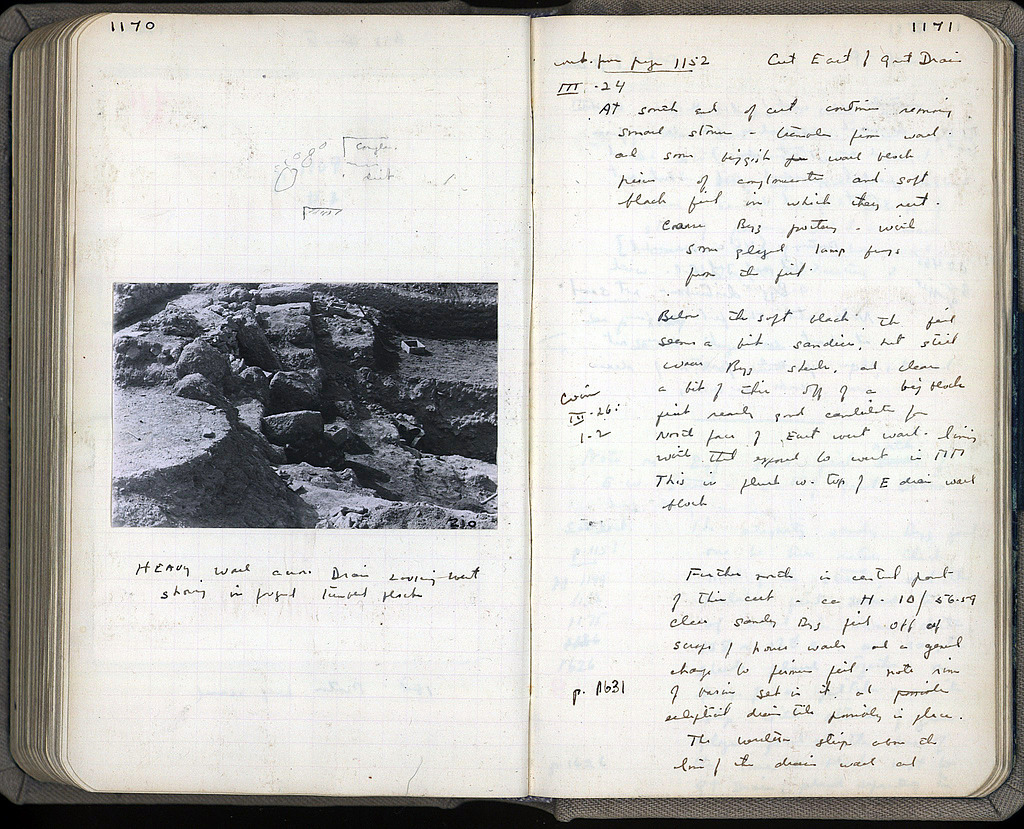 1170
Conglo.
310
HEAVY wall across Drain looking west
1171
Cut East of Great Drain
page 1152
III - 24
At south end of cut continue removing
small stones - from wall.
at some biggish wall block
pieces of conglomerate and soft
black fill in which they rest.
Coarse Byz pottery - with
some glazed lamp frags
from the fill.
Below the soft black the fill
seems a bit sandier, but still
coarse Byz sherds, and clear
a bit of this off of a big block
coin
IV - 26:
1-2
candidate for
North face of East west wall. lining
with that exposed to west in
This is flush w. top of E drain wall
block
Further north in central part
of this cut ca H - 10/56-59
clear sandy Byz fill off of
scraps of house walls and a general
change to firmer fill note rim
p. 1631
of basin set in it, at possible
elliptical drain tile possibly in place.
The western strip above the
line of the drain wall at